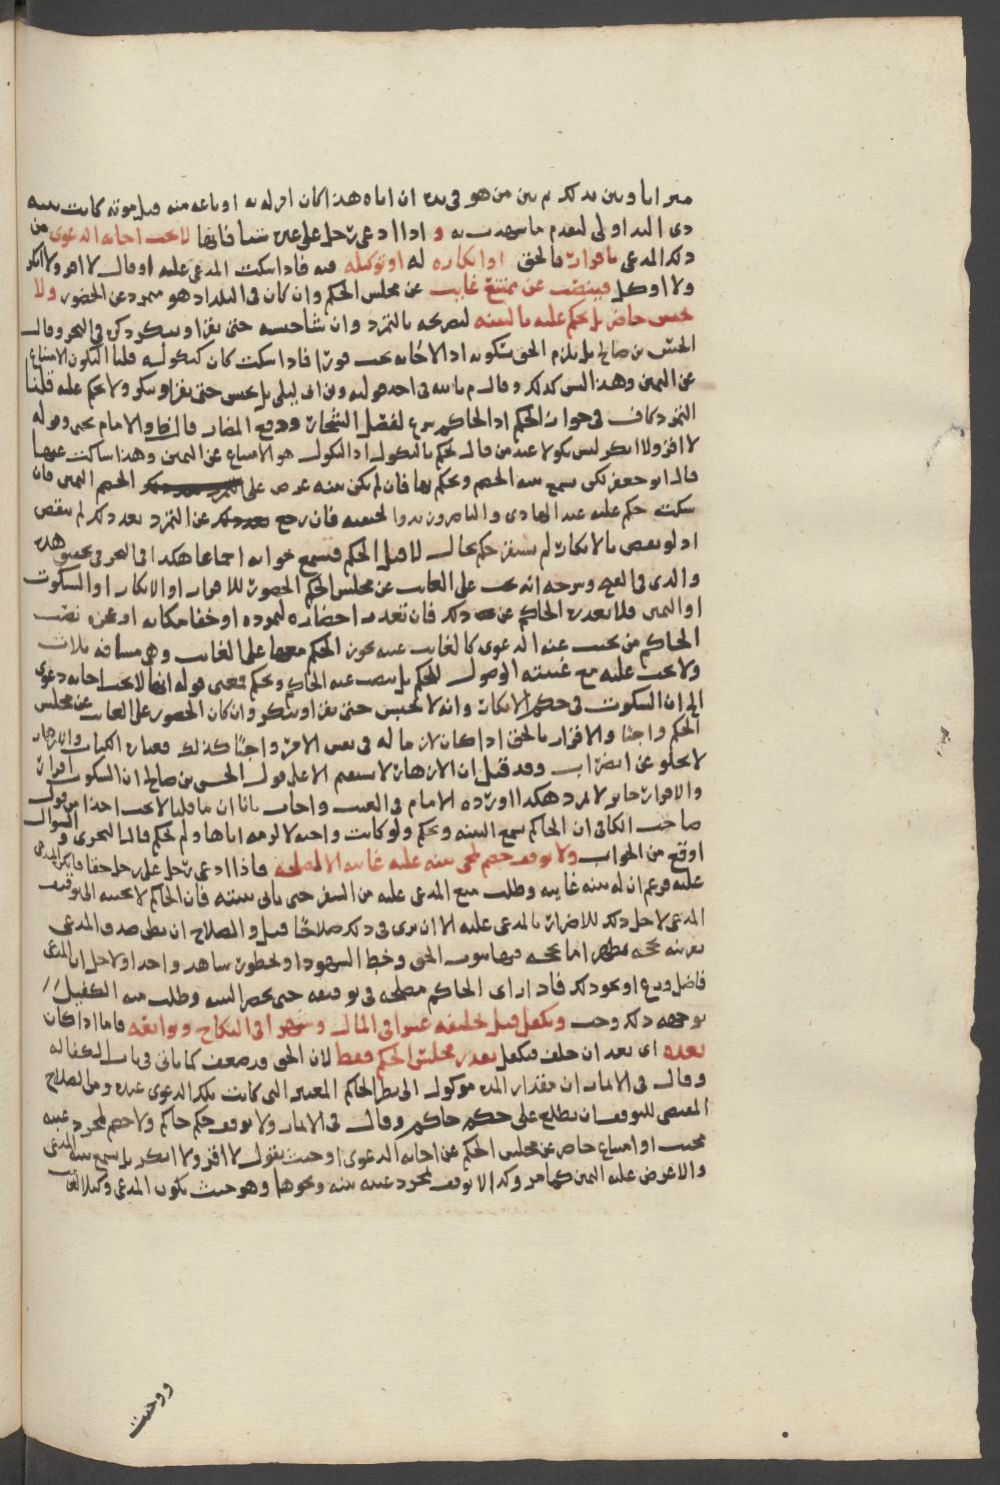 ميراثا وبين بذلك ثم بين من هو في يده ان اباه هذا كان اقر له به او باعه منه قبل موته كانت بينة
ذي اليد اولى لتقدم ما شهدت به و اذا ادعى رجل على غيره شيئا فانها لا تجب اجابة الدعوى من
ذلك المدعي باقرار بالحق او انكاره له او توكيله فيه فاذا سكت المدعى عليه او قال لا اقر ولا انكر
ولا اوكل فينصب عن ممتنع غايب عن مجلس الحكم وان كان في البلد اذ هو متمرد عن الحضور ولا
يحبس حاضر بل يحكم عليه بالبينه لتصريحه بالتمرد وان شا حبسه حتى يقر او ينكر ذكره في البحر وقال
الحسن بن صالح بل يلزم الحق بسكوته اذ الاجابه تجب فورا فاذا سكت كان كنكوله قلنا النكول الامتناع
عن اليمين وهذا ليس كذلك وقال م بالله في احد قوليه وابن ابي ليلى بل يحبس حتى يقر او ينكر ولا يحكم عليه قلنا
التمرد كاف في جواز الحكم اذ الحاكم شرع لفصل الشجار ودفع المضار قال ط والامام يحيى وقوله
لا اقر ولا انكر ليس نكولا عند من قال يحكم بالنكول اذ النكول هو الامتناع عن اليمين وهذا ساكت عنها
قال ابو جعفر لكن يسمع بينه الخصم ويحكم بها فان لم يكن بينه عرض على الخصم اليمين فان
سكت حكم عليه عند الهادي والناصر وزيد والحنفيه فان رجع عن التمرد بعد ذلك لم ينقض
اذ لو نقض بالانكار لم يستقر حكم بحال لا قبل الحكم فيسمع جوابه اجماعا هكذا في البحر في تحقيق هذه
والذي في الغيث وشرحه انه يجب على الغايب عن مجلس الحكم الحضور للاقرار او الانكار او السكوت
او اليمين فلا يعذره الحاكم عن ذلك فان تعذر احضاره لتمرده او خفا مكانه او نحوه نصب
الحاكم من يجيب عنه الدعوى كالغايب غيبه يجوز الحكم معها على الغايب وهي مسافه ثلاث
ولا يجب عليه مع غيبته الوصول للحكم بل ينصب عنه الحاكم ويحكم فمعنى قوله انها لا تجب اجابه دعوى
اي ان السكوت في حكم الانكار وانه لا يحبس حتى يقر او ينكر وان كان الحضور على الغايب عن مجلس
الحكم واجبا والاقرار بالحق اذا كان لازما له في نفس الامر واجبا كذلك فعباره الكتاب والازهار
لا تخلو عن اضطراب وقد قيل ان الازهار لا يستقيم الا على قول الحسن بن صالح ان السكوت اقرار
والاقرار جايز لا يرد هكذا اورده الامام في الغيث واجاب بانا ان ما قلنا لا يجب اخذا من قول
صاحب الكافي ان الحاكم يسمع البينه ويحكم ولو كانت واجبه لالزمه اياها ولم يحكم قال النجري والسؤال
اوقع من الجواب ولا يوقف خصم لمجي بينه عليه غايبه الا لمصلحه فاذا ادعى رجل على رجل حقا فانكر المدعى
عليه فزعم ان له بينه غايبه وطلب منع المدعى عليه من السفر حتى ياتي ببينته فان الحاكم لا يجيبه الى توقيف
المدعى لاجل ذلك للاضرار بالمدعى عليه الا ان يرى في ذلك صلاحا قيل والصلاح ان يظن صدق المدعي
بقرينه بحجه يظهر اما بحجه فيها ثبوت الحق وخط الشهود او بحضور شاهد واحد او لاجل ان المدعي
فاضل ورع او نحو ذلك فاذا راى الحاكم مصلحه في توقيفه حتى يحضر البينه وطلب منه الكفيل
بوجهه ذلك وجب ويكفل قبل تحليفه عشرا في المال وشهرا في النكاح وتوابعه فاما اذا كان
بعده اي بعد ان حلف فيكفل بقدر مجلس الحكم فقط لان الحق قد ضعف كما ياتي في باب الكفاله
وقال في الاثمار ان مقدار المده موكول الى نظر الحاكم المعتبر التي كانت بذلك الدعوى عنده ومن الصلاح
المقتضي للتوقف ان يطلع على حكم حاكم وقال في الاثمار ولا يوقف حكم حاكم ولا خصم لمجرد غيبه
مجيب او امتناع حاضر عن مجلس الحكم عن اجابه الدعوى او حيث يقول لا اقر ولا انكر بل يسمع بينه المدعي
والا عرض عليه اليمين كما مر وكذا لا يوقف لمجرد غيبه بينه ونحوها وهو حيث يكون المدعي وكيلا لغايب
ووحيث